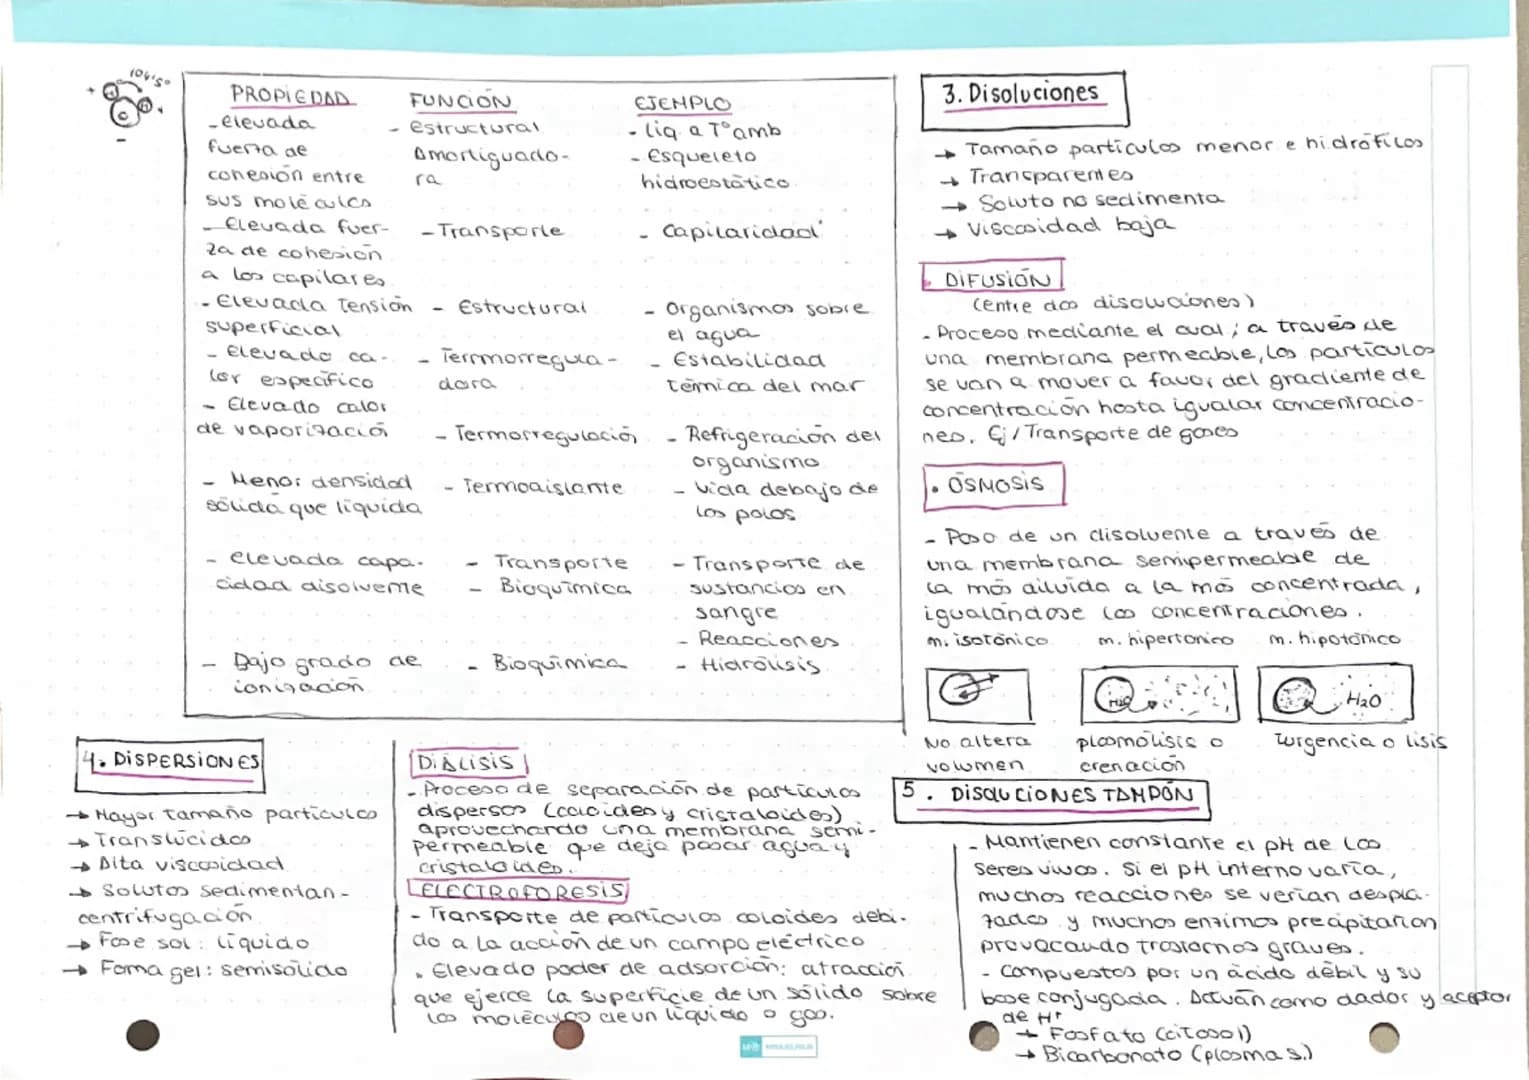 104'5º
PROPIEDAD FUNCIÓN EJEMPLO
- elevada fuerza de cohesión entre sus moléculas
- Estructural Amortiguado-ra
- Liq. a Tº amb
- Esqueleto hidroestático.
- Elevada fuer-za de cohesión a los capilares.
- Transporte
- Capilaridad
- Elevada tensión superficial
- Estructural
- Organismos sobre el agua
- Elevado ca-lor específico
- Termorregula-dora
- Estabilidad térmica del mar
- Elevado calor de vaporización
- Termorregulación
- Refrigeración del organismo.
- Menor densidad sólida que líquida
- Termoaislante
- Vida debajo de los polos
- elevada capa-cidad disolvente
- Transporte
- Bioquímica
- Transporte de sustancias en sangre
- Reacciones
- Bajo grado de ionización
- Bioquímica
- Hidrólisis
3. Disoluciones
→ Tamaño partículas menor e hidrófilos
→ Transparentes
→ Soluto no sedimenta
→ Viscosidad baja
. DIFUSIÓN
(entre dos disoluciones)
- Proceso mediante el cual, a través de
una membrana permeable, las partículas
se van a mover a favor del gradiente de
concentración hasta igualar concentracio-
nes. Ej/Transporte de gases
. ÓSMOSIS
- Paso de un disolvente a través de
una membrana semipermeable de
la más diluida a la más concentrada,
igualándose las concentraciones.
m. isotónico m. hipertónico m. hipotónico
H2O H2O
No altera volumen
plasmólisis o crenación
Turgencia o lisis
4. DISPERSIONES
→ Mayor tamaño partículas
→ Translúcidas
→ Alta viscosidad
→ Solutos sedimentan-
centrifugación
→ Fase sol: líquido
→ Forma gel: semisólido
DIÁLISIS
- Proceso de separación de partículas
dispersas (coloides y cristaloides)
aprovechando una membrana semi-
permeable que deja pasar agua y
cristaloides.
ELECTROFORESIS
- Transporte de partículas coloides debi-
do a la acción de un campo eléctrico
. Elevado poder de adsorción: atracción
que ejerce la superficie de un sólido sobre
las moléculas de un líquido o gas.
5. DISOLUCIONES TAMPÓN
- Mantienen constante el pH de los
seres vivos. Si el pH interno varía,
muchas reacciones se verían despla-
zadas y muchas enzimas precipitarían
provocando trastornos graves.
- Compuestos por un ácido débil y su
base conjugada. Actúan como dador y aceptor
de H⁺
→ Fosfato (citosol)
→ Bicarbonato (plasma s.)